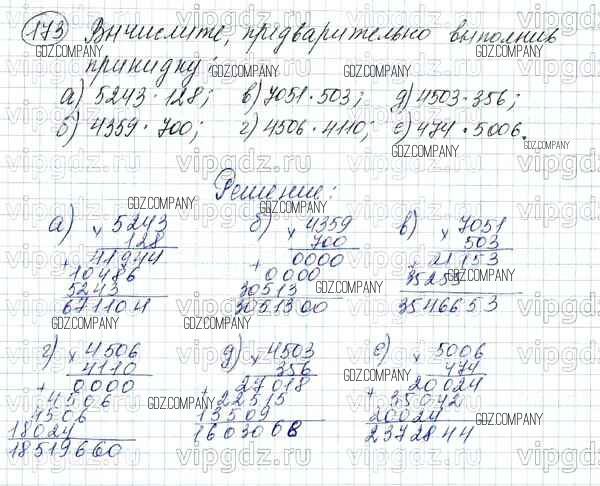 173 Вычислите, предварительно выполнив
прикидку:
а) 5243 · 128; в) 7051 · 503; д) 4503 · 356;
б) 4359 · 700; г) 4506 · 4110; е) 474 · 5006.
Решение:
а) × 5243
128
+ 41944
10486
5243
671104
б) × 4359
700
+ 0000
0000
30513
3051300
в) × 7051
503
+ 21153
35255
3546653
г) × 4506
4110
+ 0000
4506
4506
18024
18519660
д) × 4503
356
+ 27018
22515
13509
1603008
е) × 5006
474
+ 20024
35042
20024
2372844
GDZ.COMPANY
vipgdz.ru